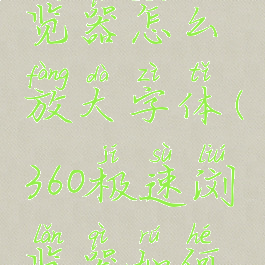 览器怎么
fàng dà zì tǐ
放大字体(
jí sù liú
360极速浏
lǎn qì rú hé
览器如何